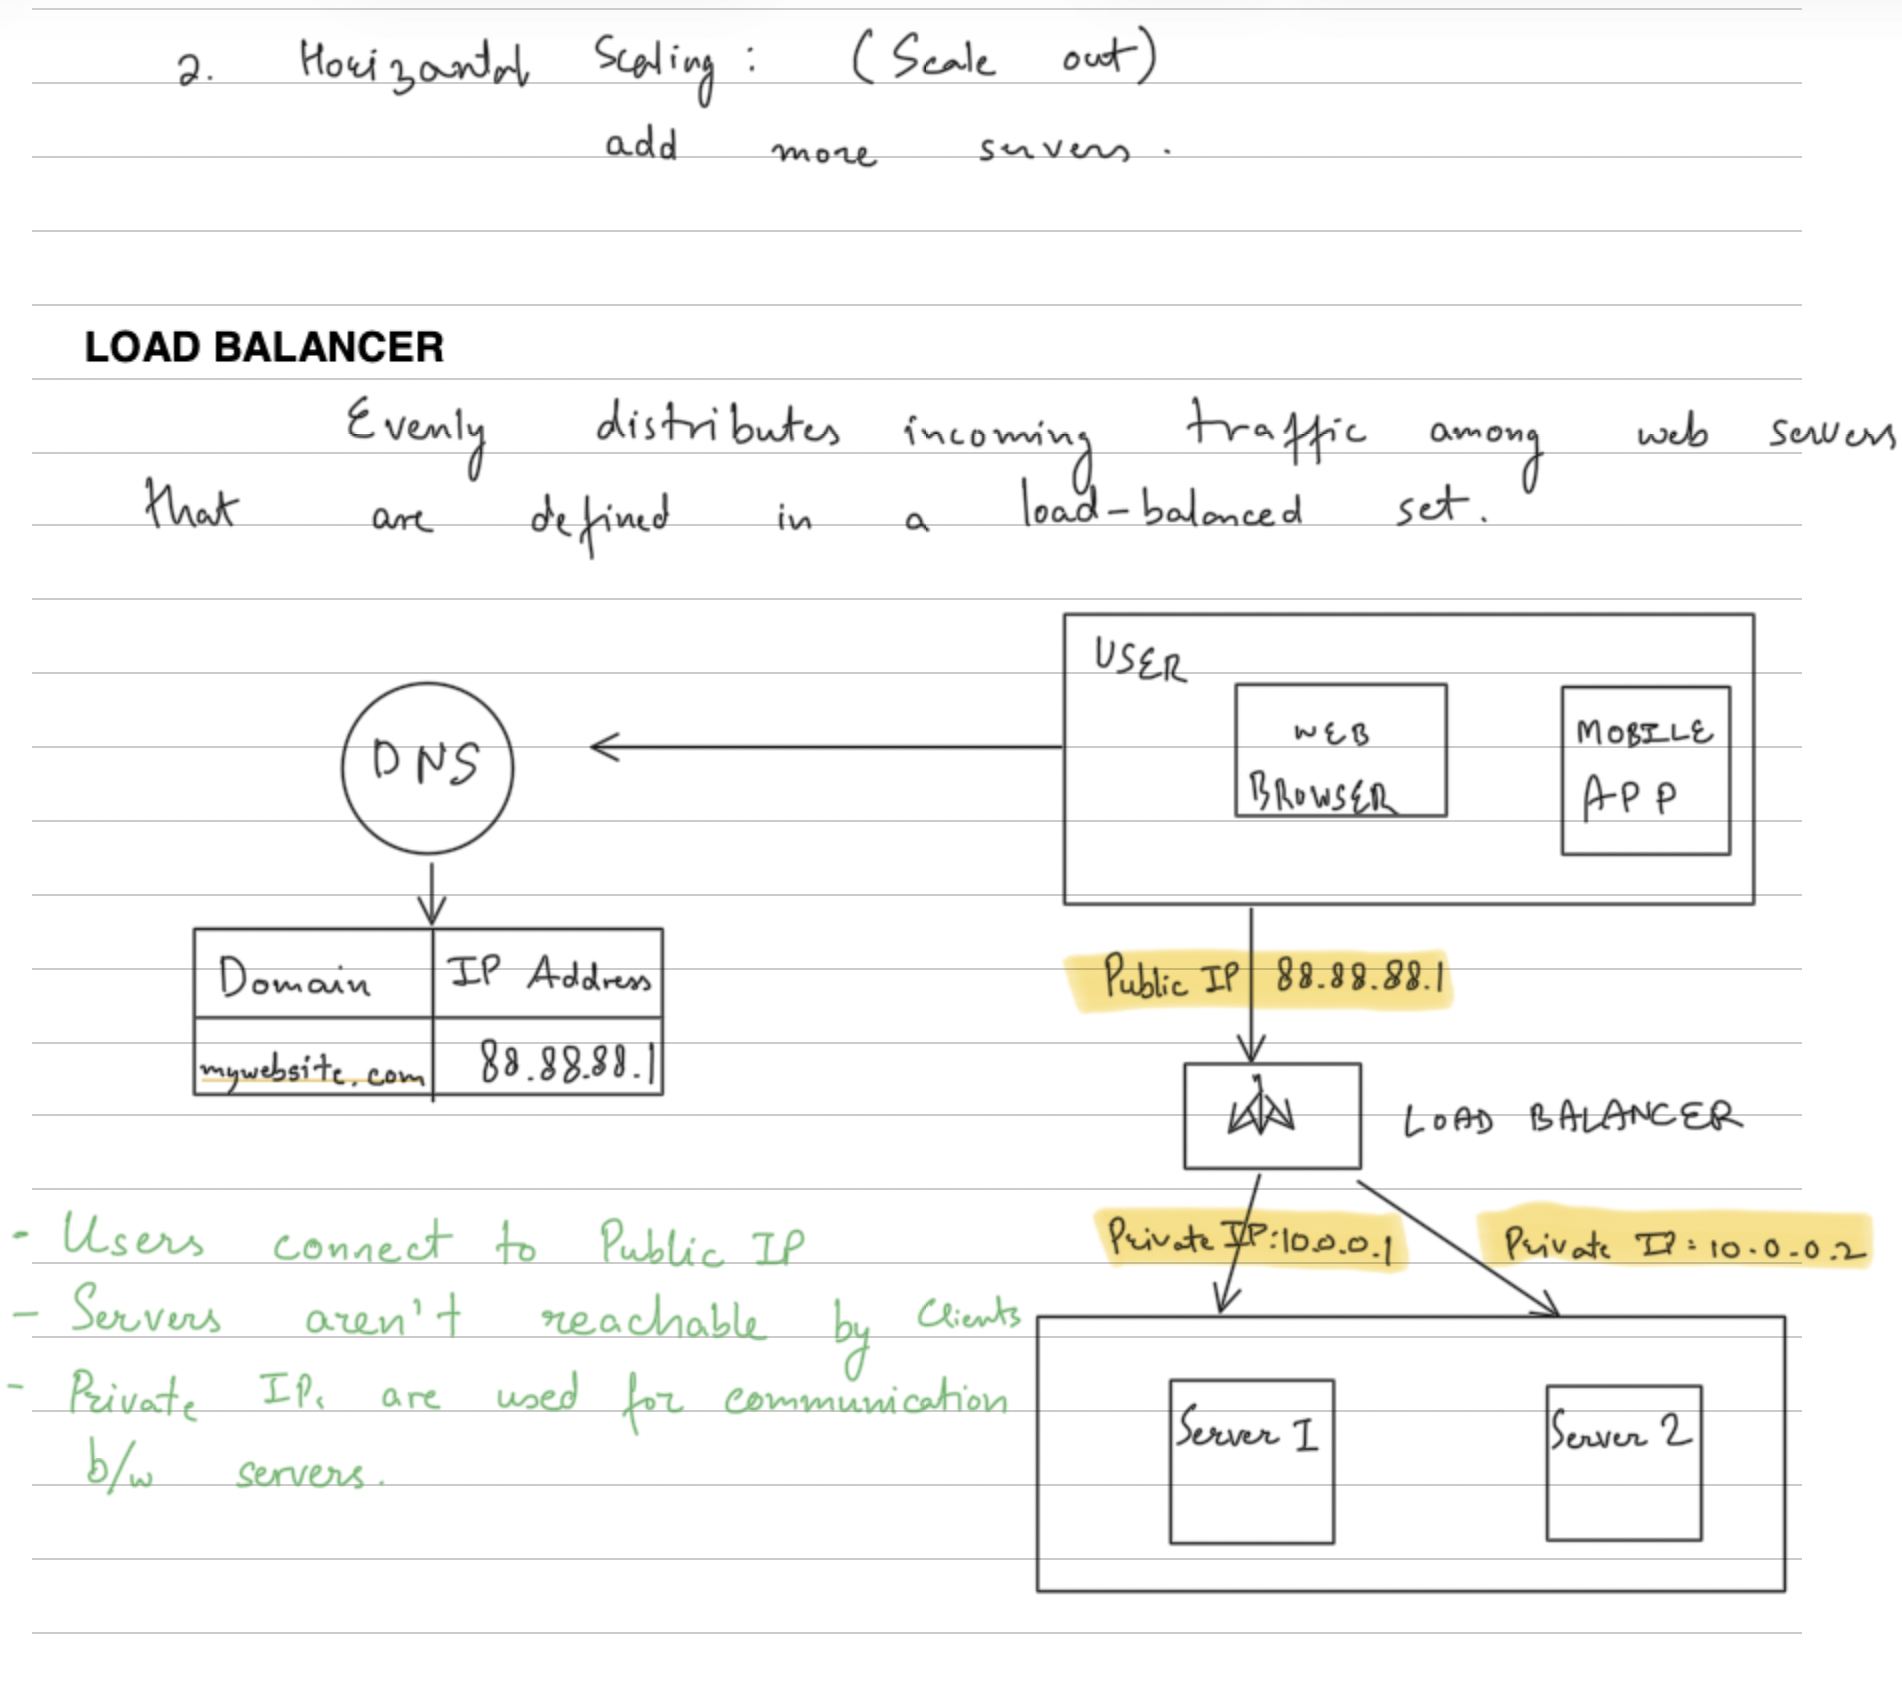 2. Horizontal Scaling: (Scale out)
add more servers.
LOAD BALANCER
Evenly distributes incoming traffic among web servers
that are defined in a load-balanced set.
USER
WEB
BROWSER
MOBILE
APP
DNS
Domain IP Address
mywebsite.com 88.88.88.1
Public IP 88.88.88.1
LOAD BALANCER
Private IP:10.0.0.1
Private IP: 10.0.0.2
- Users connect to Public IP
- Servers aren't reachable by Clients
- Private IPs are used for communication
b/w servers.
Server 1
Server 2